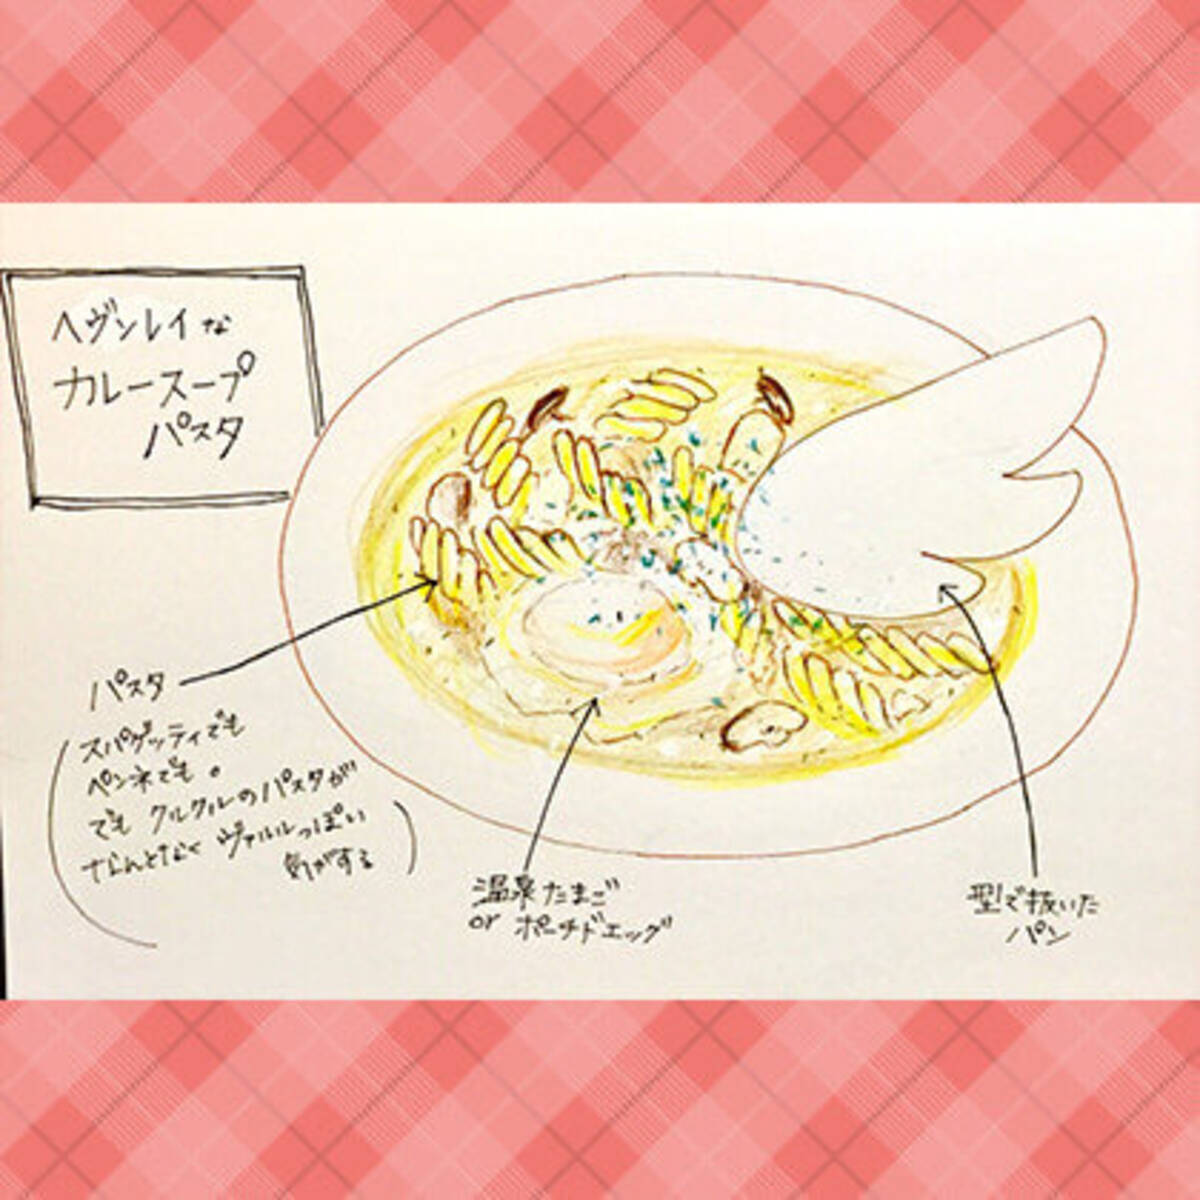 ヘヴンレイな
カレースープ
パスタ
パスタ
スパゲッティでも
ペンネでも。
でも クルクルのパスタが
なんとなく ヴァルルっぽい
気がする
温泉たまご
or ポーチドエッグ
型で抜いた
パン